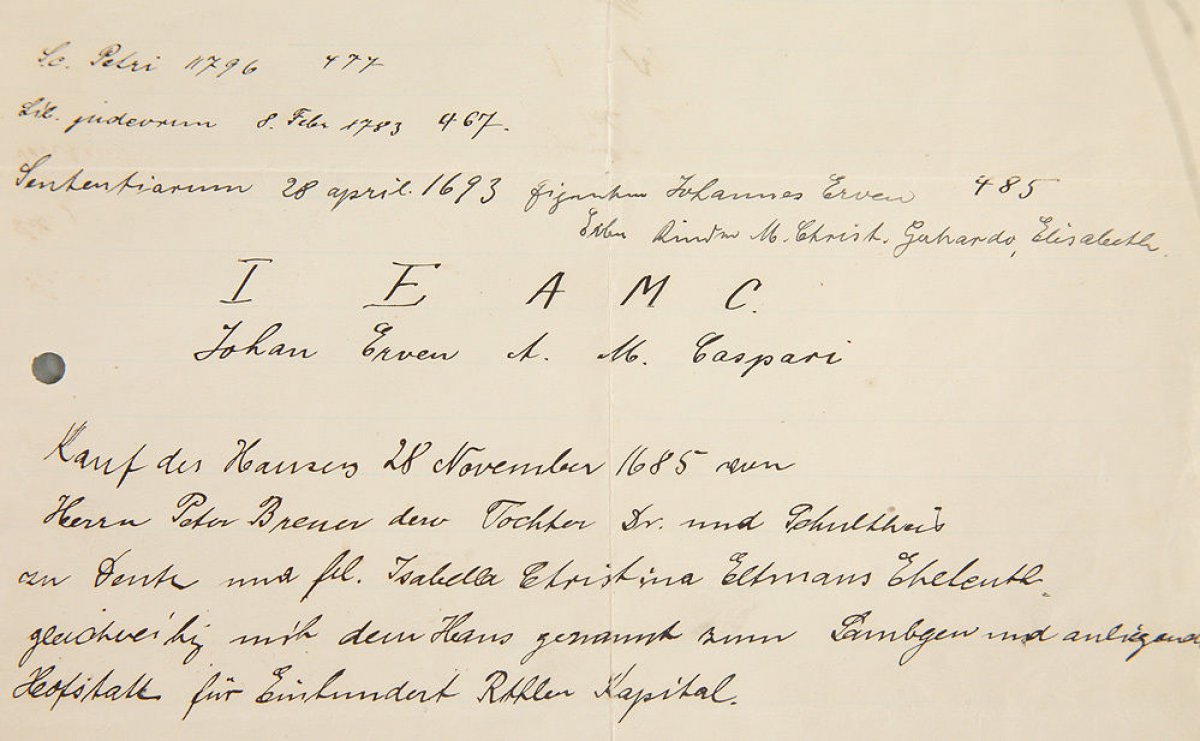 Sc. Petri 1796 477
Lib. judeorum 8. Febr 1783 467.
Sententiarum 28 april. 1693 Johannes Erven 485
Kinder M. Christ. Gerhardo, Elisabeth.
I E A M C.
Johan Erven A. M. Caspari
Kauf des Hauses 28 November 1685 von
Herrn Peter Breuer der Tochter Dr. und Schultheis
zu Deutz und Isabella Christina Eltmans Eheleuth.
gleichzeitig mit dem Haus genannt zum Lämbgen und anliegende
Hofstatt für Einhundert Rthler Kapital.